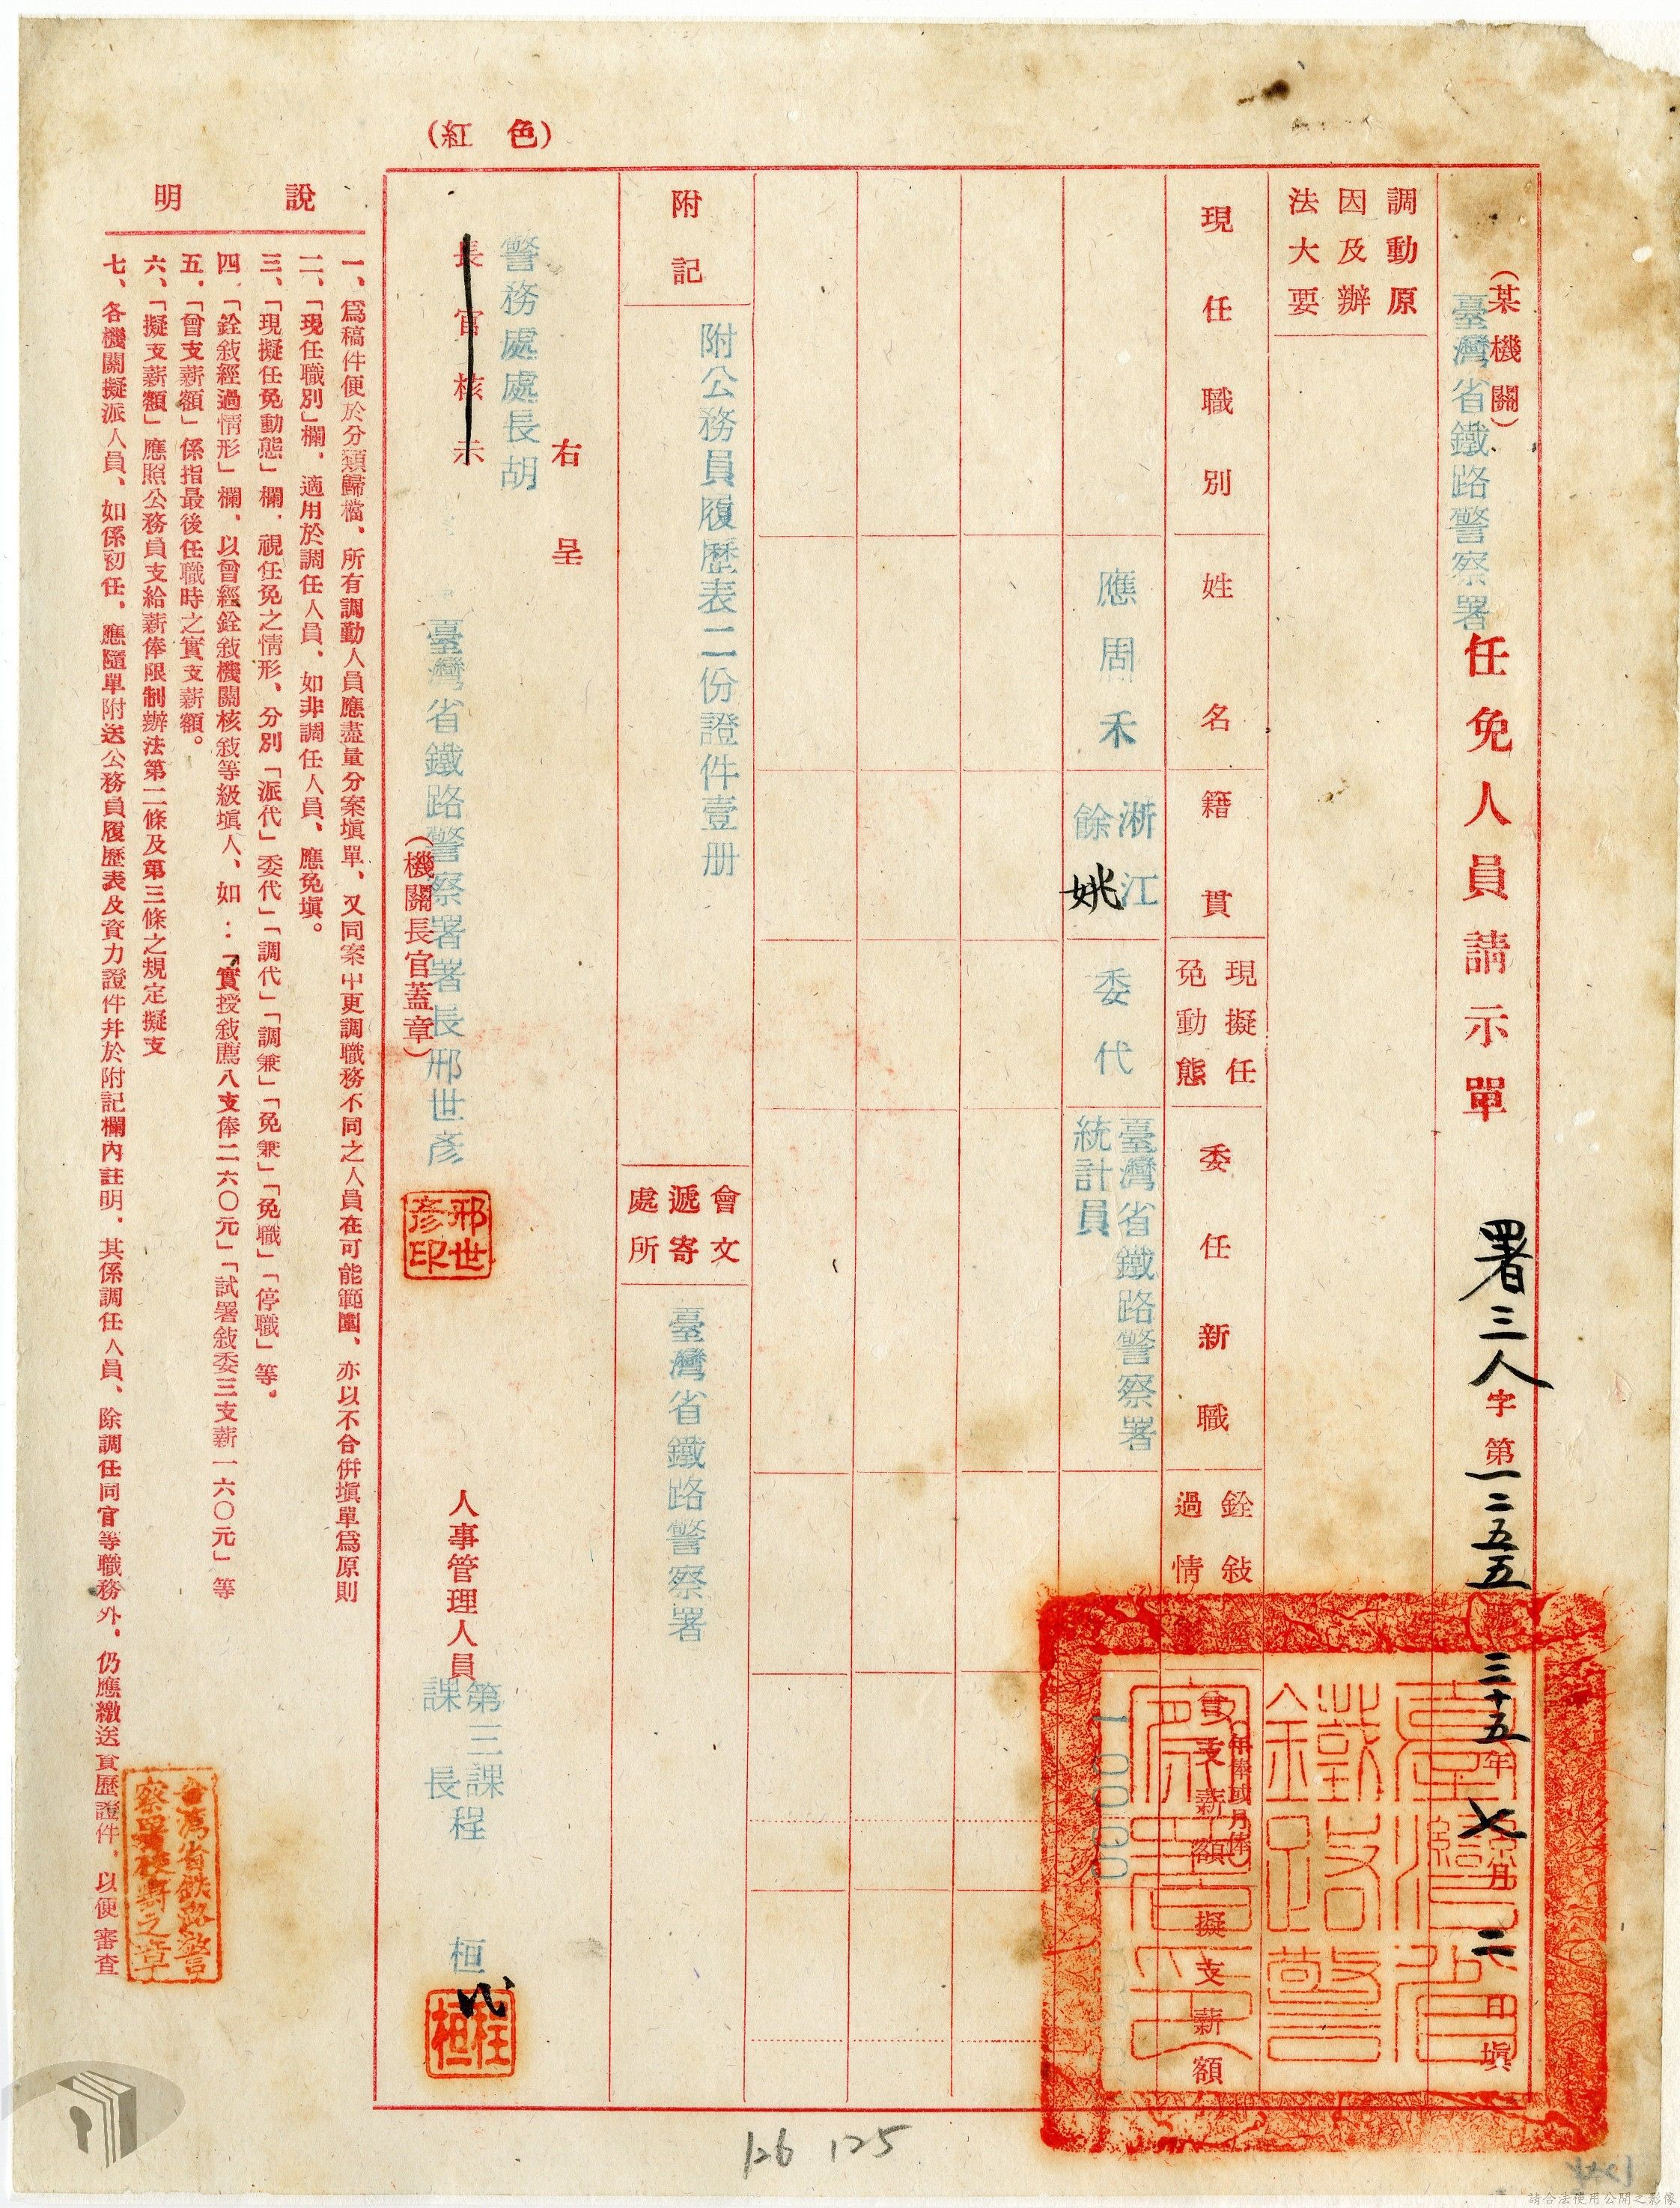 (紅色)
(某機關)
臺灣省鐵路警察署
任免人員請示單
署三人字第一二五五
三十五年七月二日填
調動原
因及辦
法大要
現任職別
姓名
籍貫
現擬任
免動態
委任新職
銓敍
過情
曾支薪額
擬支薪額
應周禾
浙江
餘姚
委代
臺灣省鐵路警察署
統計員
附記
附公務員履歷表二份證件壹册
會文
遞寄
處所
臺灣省鐵路警察署
右呈
警務處處長胡
長官核示
臺灣省鐵路警察署署長邢世彥
(機關長官蓋章)
邢世
彥印
人事管理人員
第三課
課長程桓
代
程
桓
說明
一、爲稿件便於分類歸檔、所有調動人員應盡量分案填單、又同案中更調職務不同之人員在可能範圍、亦以不合併填單爲原則
二、「現任職別」欄、適用於調任人員、如非調任人員、應免填。
三、「現擬任免動態」欄、視任免之情形、分別「派代」委代」「調代」「調兼」「免兼」「免職」「停職」等。
四、「銓敍經過情形」欄、以曾經銓敍機關核敍等級填人、如：「實授敍薦八支俸二六〇元」「試署敍委三支薪一六〇元」等
五、「曾支薪額」係指最後任職時之實支薪額。
六、「擬支薪額」應照公務員支給薪俸限制辦法第二條及第三條之規定擬支
七、各機關擬派人員、如係初任、應隨單附送公務員履歷表及資力證件幷於附記欄內註明、其係調任人員、除調任同官等職務外、仍應繳送資歷證件、以便審查
台灣省鉄路警
察署校對之章
臺灣省
鐵路警
察署印
126 125
請合法使用公開之影像